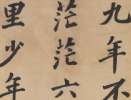 九年不
茫茫六
里少年